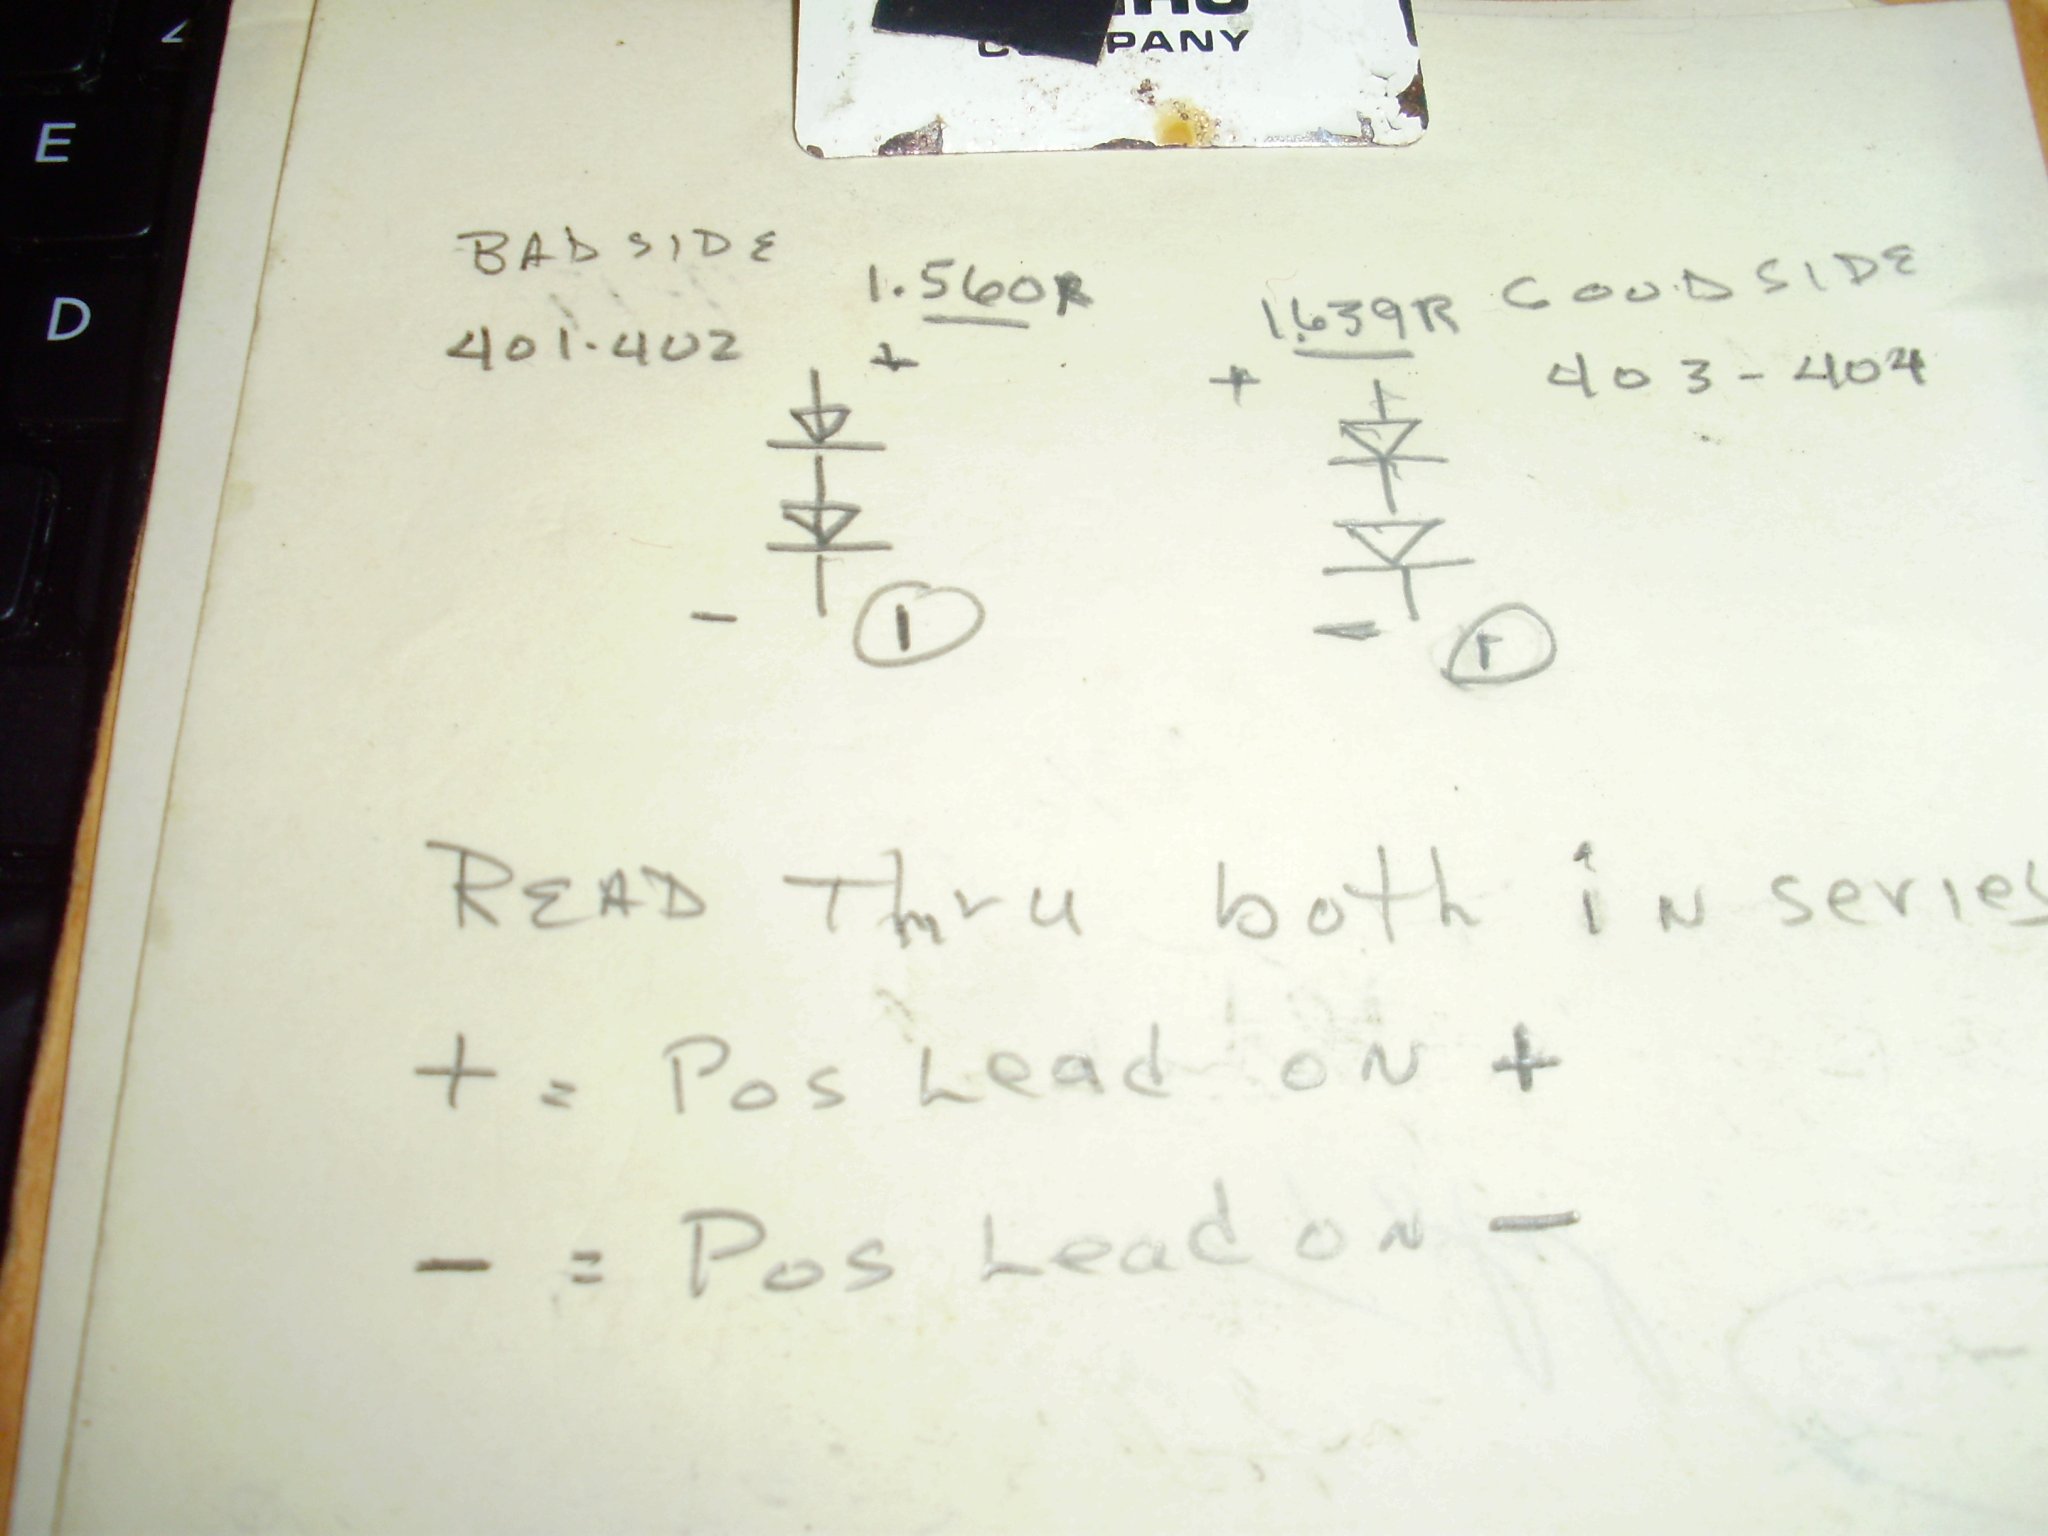 PANY
E
D
BAD SIDE
401-402
1.560R
+
-
1
1.639R
GOOD SIDE
403-404
+
-
1
READ Thru both in series
+ = Pos Lead on +
- = Pos Lead on -